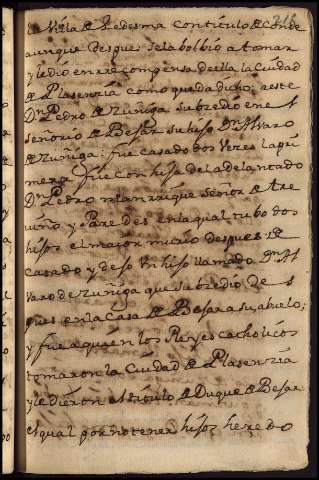 la Villa de Ledesma con titulo de Conde 216
aunque despues se la bolbio a tomar
y le dio en rrecompensa de ella la Ciudad
de Plasenzia como queda dicho; a este
Dn Pedro de Zuñiga subzedio en el
señorio de Besar su hijo Dn Alvaro
de Zuñiga fue casado dos Vezes la pri
mera fue con hija del adelantado
Dn Pedro manrrique señor de tre
uiño y Paredes en la qual tubo dos
hijos el maior murio despues de
casado y dejo Un hijo llamado Dn Al
varo de Zuñiga que subzedio des
pues en la Casa de Besar a su abuelo;
y fue a quien los Reyes catholicos
tomaron la Ciudad de Plasenzia
y le dieron el titulo de Duque de Besar
el qual por no tener hijos heredo